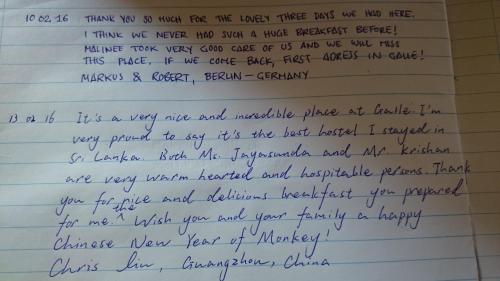 10 02.16 THANK YOU SO MUCH FOR THE LOVELY THREE DAYS WE HAD HERE.
I THINK WE NEVER HAD SUCH A HUGE BREAKFAST BEFORE!
MALINEE TOOK VERY GOOD CARE OF US AND WE WILL MISS
THIS PLACE. IF WE COME BACK, FIRST ADRESS IN GALLE!
MARKUS & ROBERT, BERLIN - GERMANY
13 02 16 It's a very nice and incredible place at Galle. I'm
very proud to say it's the best hostel I stayed in
Sri Lanka. Both Ms. Jayasunda and Mr. Krishan
are very warm hearted and hospitable persons. Thank
you for the nice and delicious breakfast you prepared
for me. Wish you and your family a happy
Chinese New Year of Monkey!
Chris , Guangzhou, China